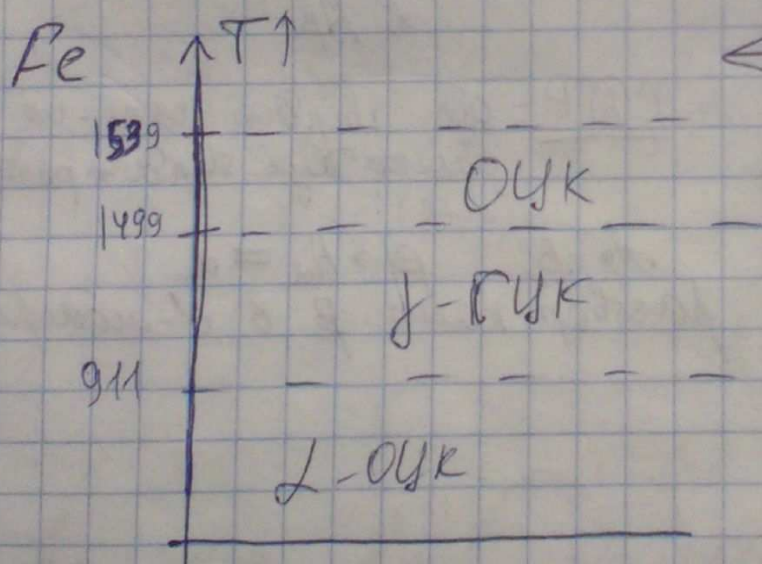 Fe T↑
1539
ОЦК
1499
γ-ГЦК
911
α-ОЦК